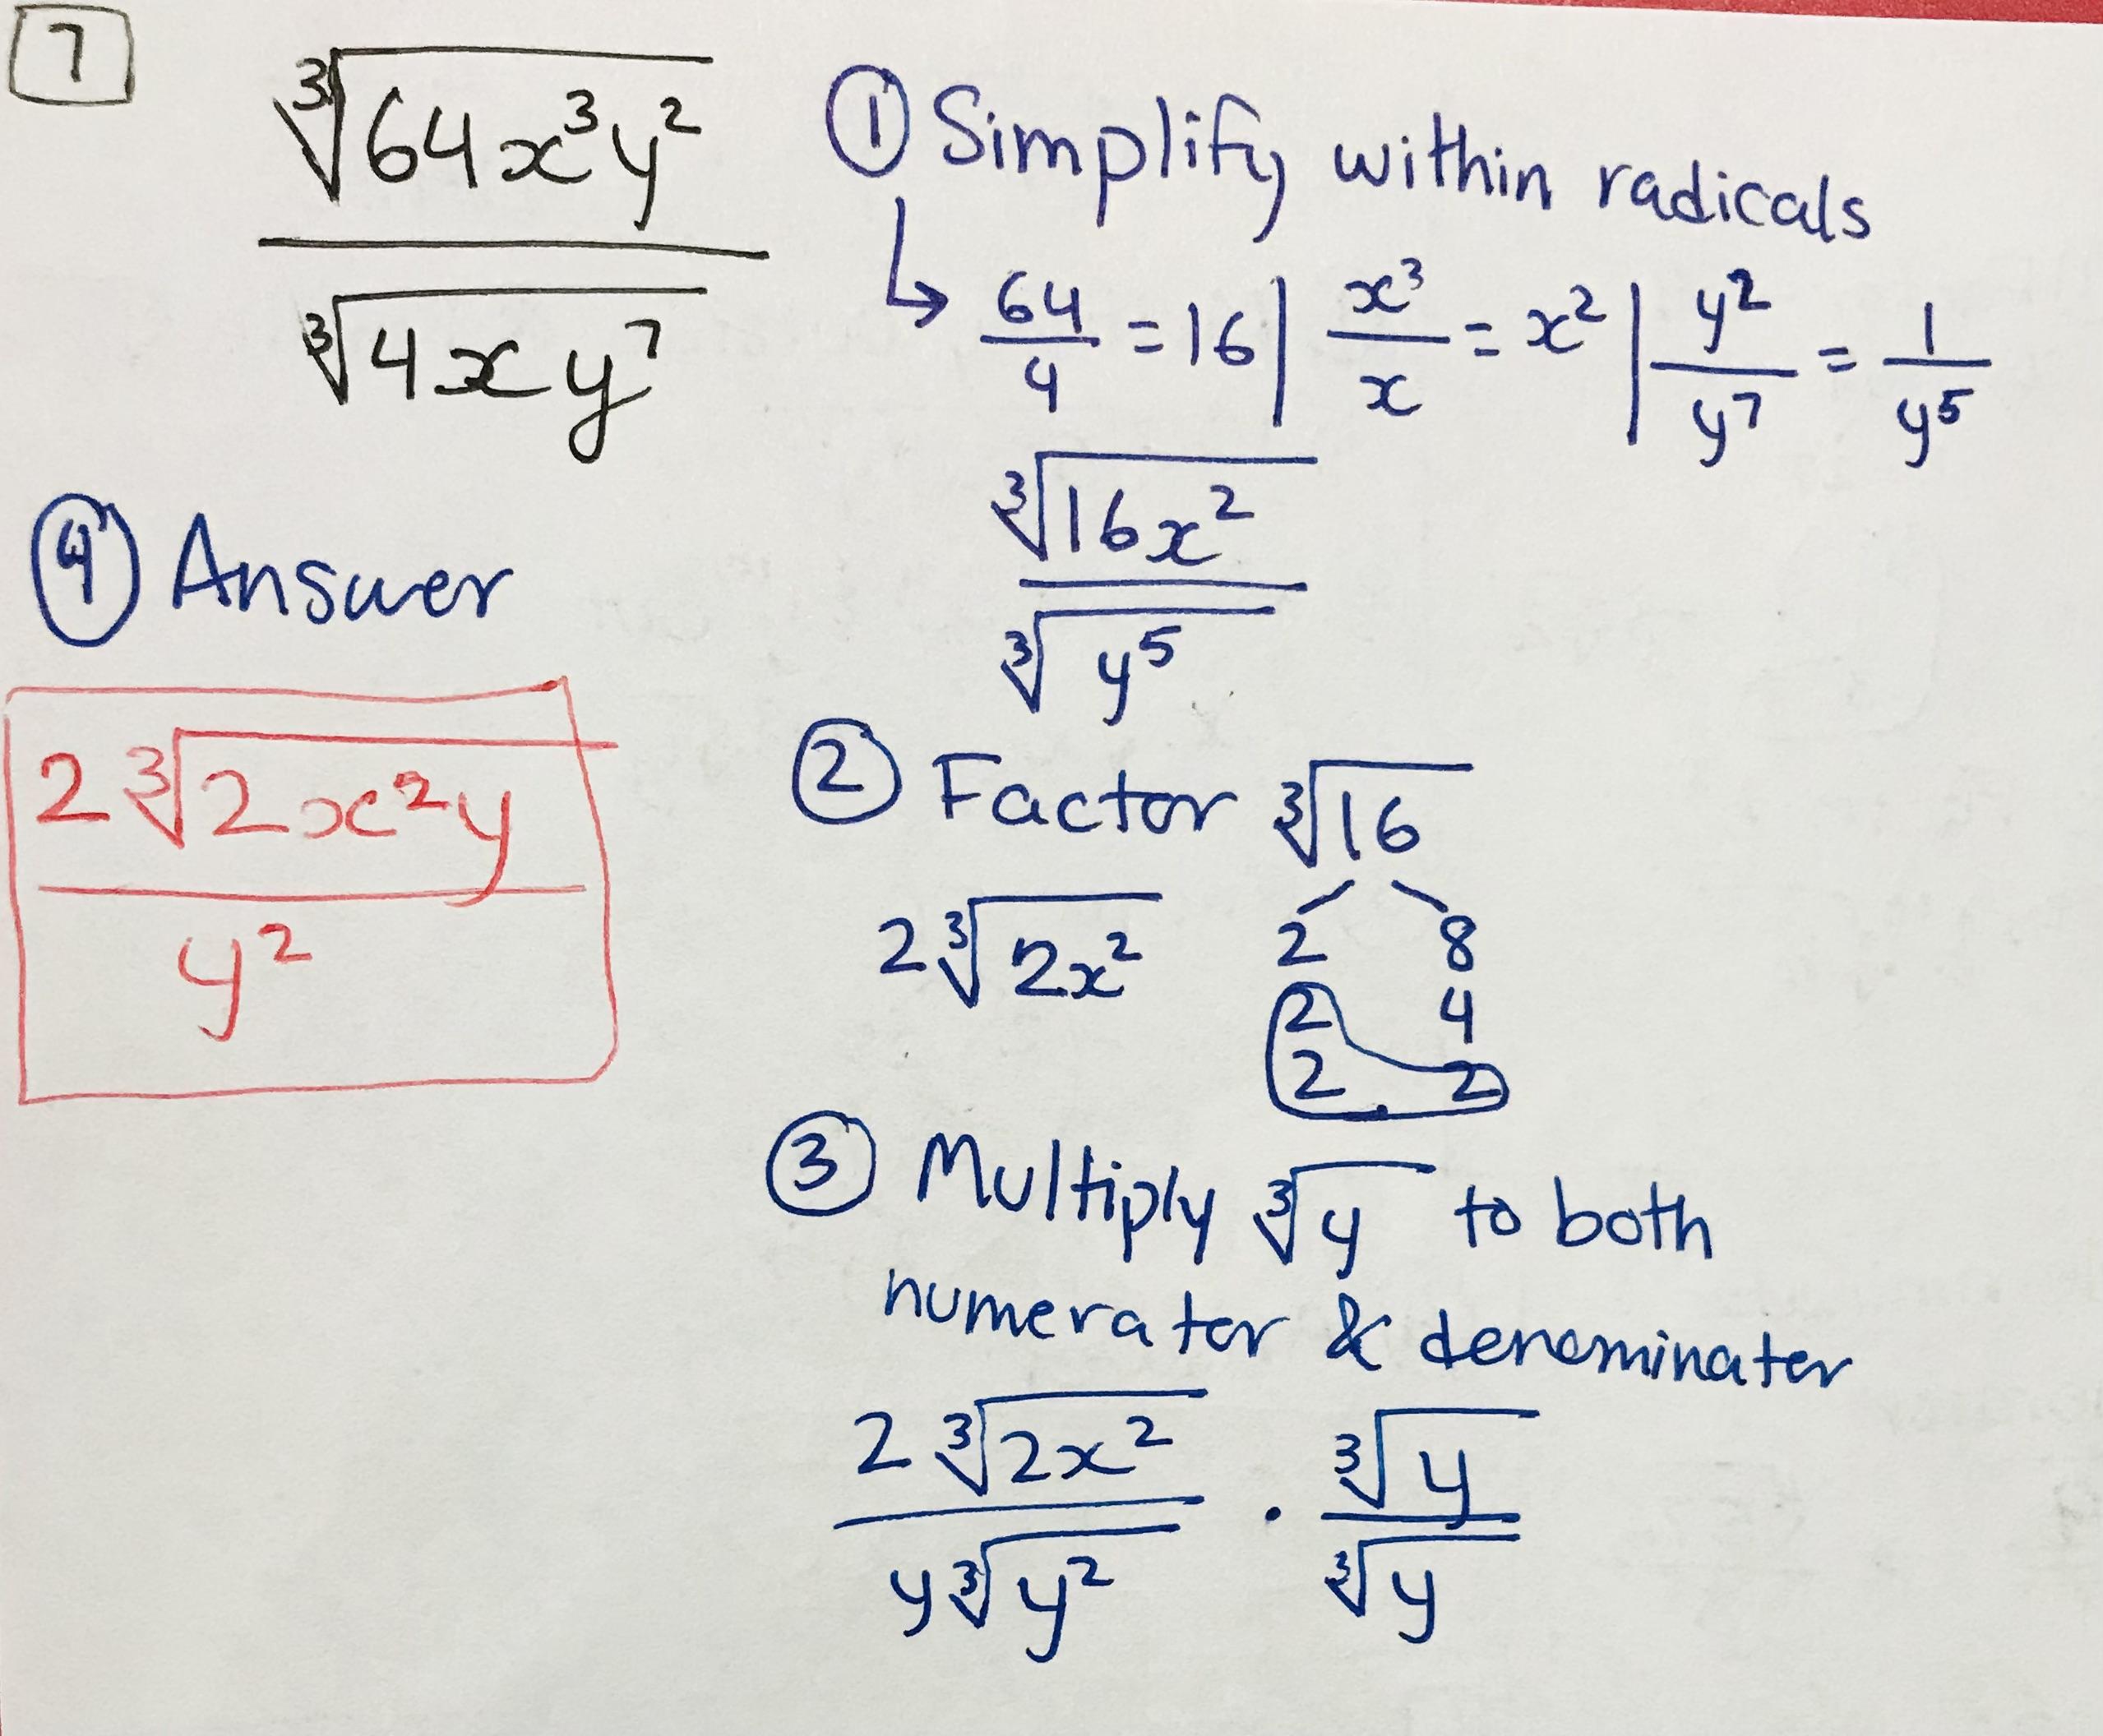 7
∛(64x³y²)
∛(4xy⁷)
① Simplify within radicals
↳ 64/4 = 16 | x³/x = x² | y²/y⁷ = 1/y⁵
∛(16x²)
∛(y⁵)
② Factor ∛16
2∛(2x²)
2 8
2 4
2 2
③ Multiply ∛y to both
numerator & denominater
2∛(2x²) / y∛(y²) · ∛y / ∛y
④ Answer
2∛(2x²y)
y²